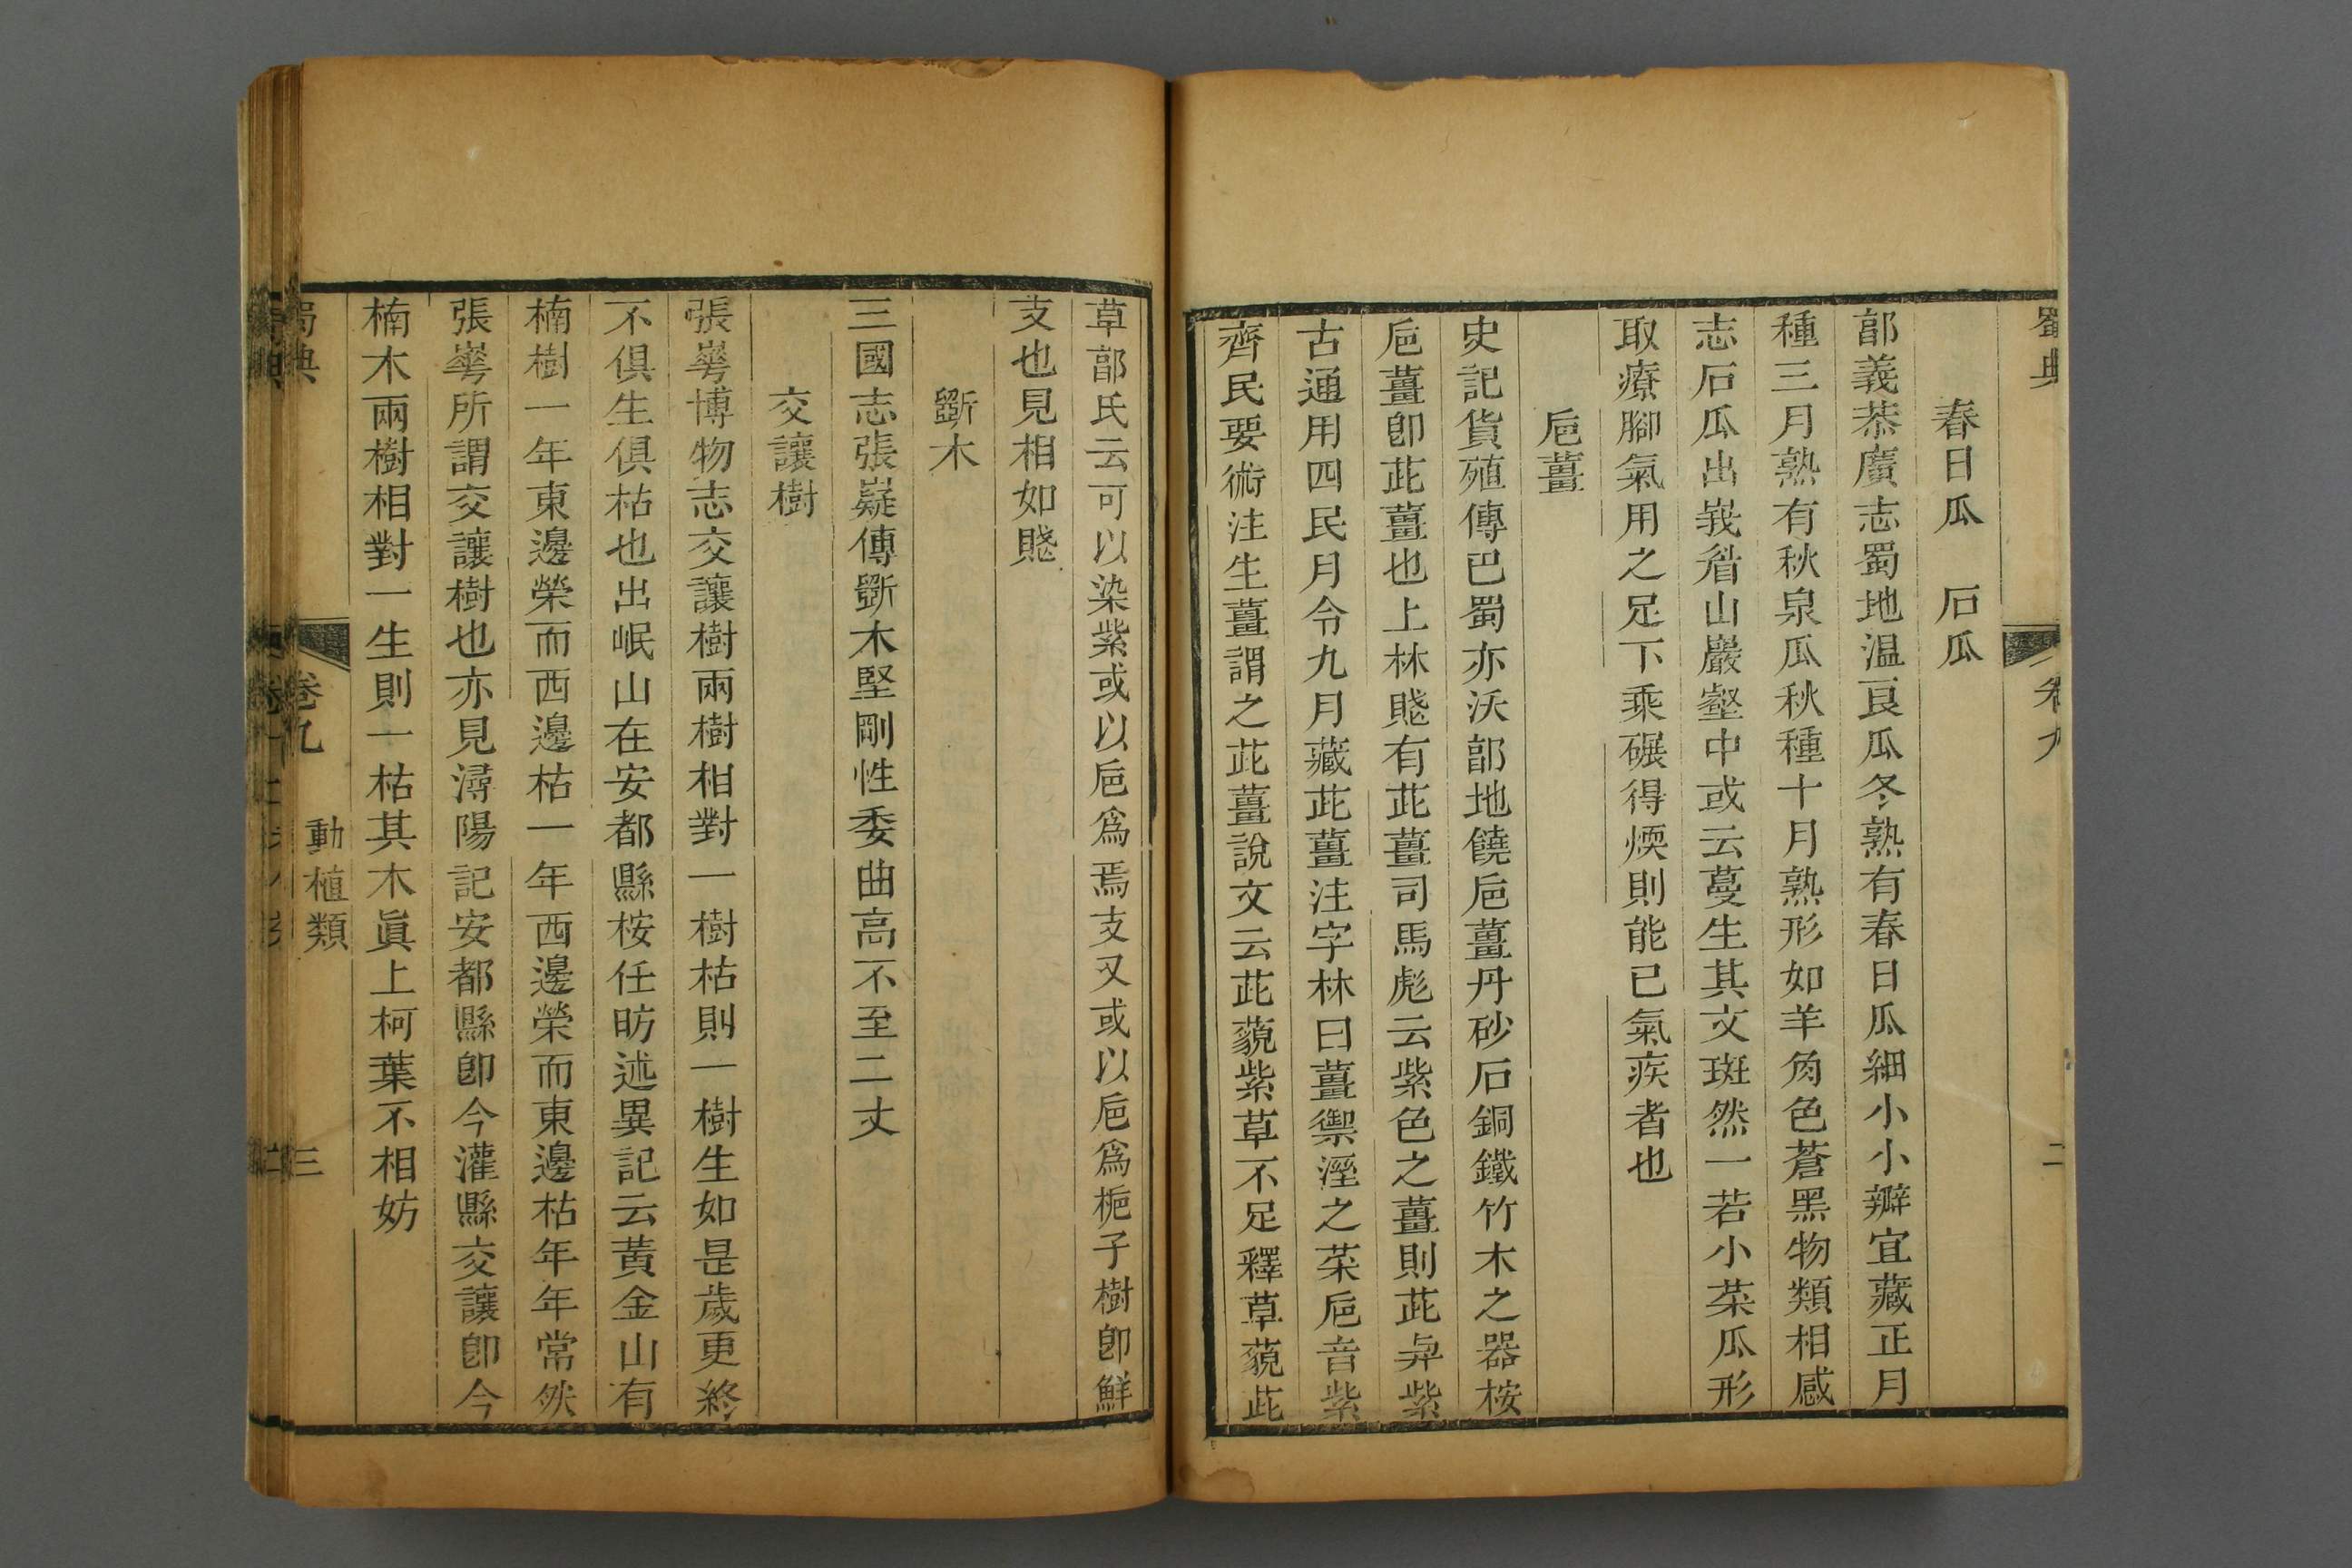 蜀典 卷九 二
春日瓜 石瓜
郭義恭廣志蜀地温良瓜冬熟有春日瓜細小小瓣宜藏正月
種三月熟有秋泉瓜秋種十月熟形如羊角色蒼黑物類相感
志石瓜出峩眉山巖壑中或云蔓生其文斑然一若小菜瓜形
取療腳氣用之足下乘碾得煗則能已氣疾者也
巵薑
史記貨殖傳巴蜀亦沃郭地饒巵薑丹砂石銅鐵竹木之器桉
巵薑卽茈薑也上林賤有茈薑司馬彪云紫色之薑則茈㢲紫
古通用四民月令九月藏茈薑注字林曰薑禦溼之菜巵音紫
齊民要術注生薑謂之茈薑說文云茈藐紫草不足釋草藐茈
草郭氏云可以染紫或以巵爲焉支又或以巵爲梔子樹卽鮮
支也見相如賤
斲木
三國志張嶷傳斲木堅剛性委曲高不至二丈
交讓樹
張崋博物志交讓樹兩樹相對一樹枯則一樹生如是歲更終
不俱生俱枯也出岷山在安都縣桉任昉述異記云黃金山有
楠樹一年東邊榮而西邊枯一年西邊榮而東邊枯年年常然
張崋所謂交讓樹也亦見潯陽記安都縣卽今灌縣交讓卽今
楠木兩樹相對一生則一枯其木眞上柯葉不相妨
蜀典 卷九 動植類 三